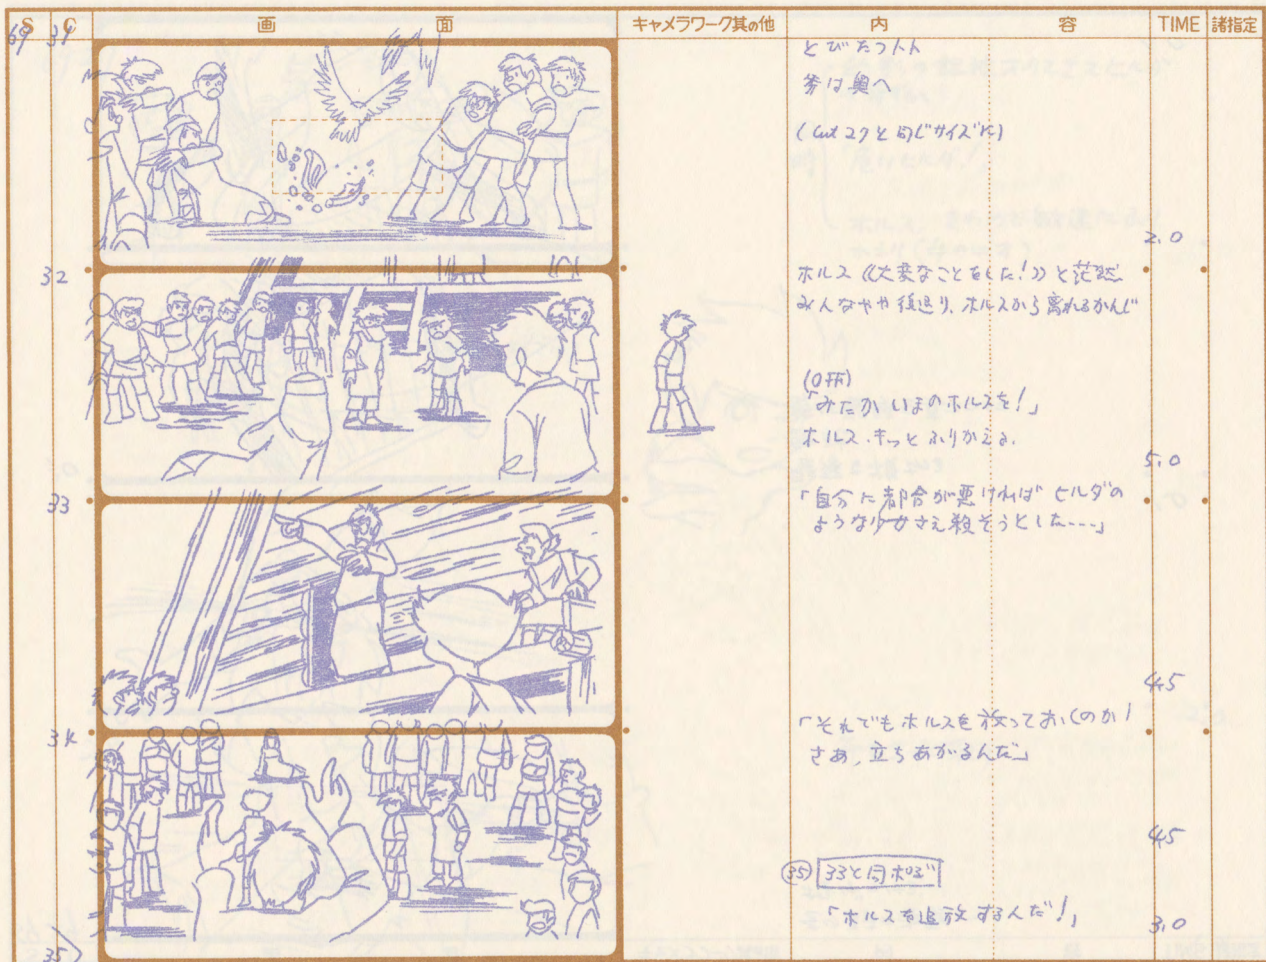 S C 画 面 キャメラワーク其の他 内 容 TIME 諸指定
69 31
とびたつトト
斧は奥へ
(cut 27と同じサイズに)
2.0
32
ホルス《大変なことをした!》と茫然
みんなやや後退り、ホルスから離れるかんじ
(OFF)
「みたか、いまのホルスを!」
ホルス、キッとふりかえる。
5.0
33
「自分に都合が悪ければ ヒルダの
ような少女さえ殺そうとした……」
4.5
34
「それでもホルスを放っておくのか!
さあ、立ちあがるんだ」
4.5
35 33と同ポジ
「ホルスを追放するんだ!」
3.0
35